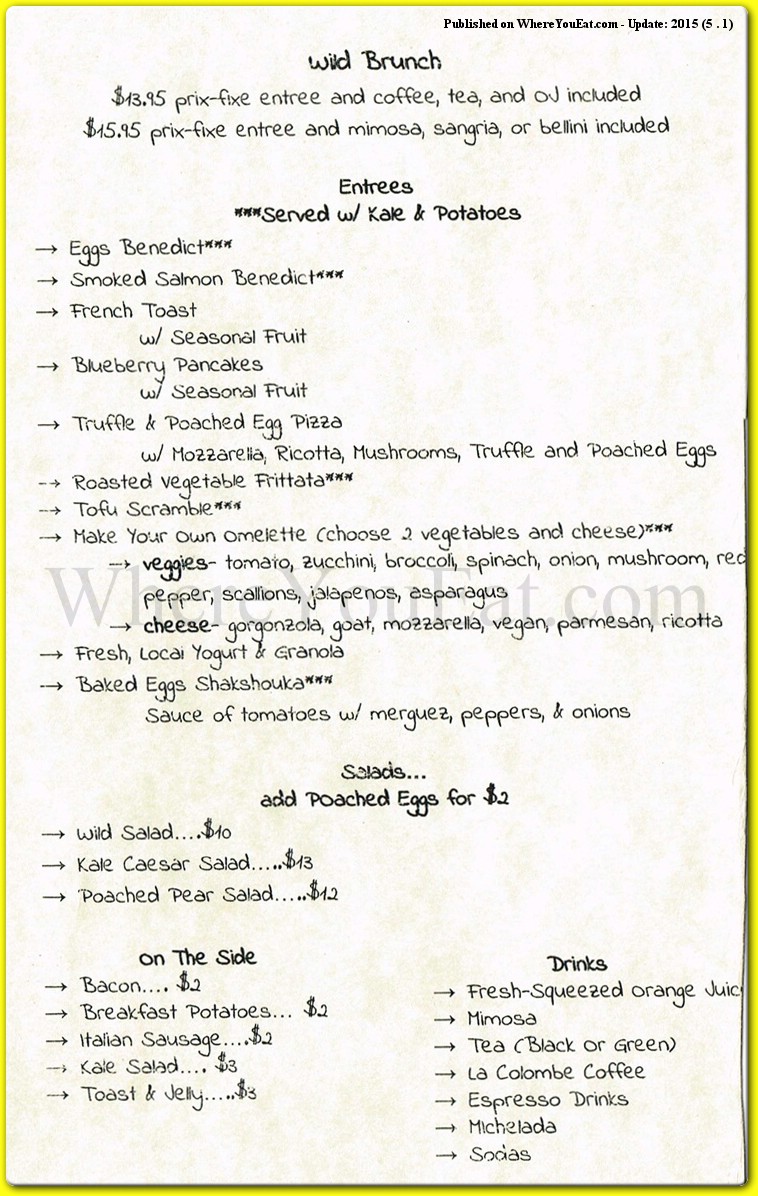 Published on WhereYouEat.com - Update: 2015 (5 . 1)
Wild Brunch
$13.95 prix-fixe entree and coffee, tea, and OJ included
$15.95 prix-fixe entree and mimosa, sangria, or bellini included
Entrees
***Served w/ Kale & Potatoes
→ Eggs Benedict***
→ Smoked Salmon Benedict***
→ French Toast
w/ Seasonal Fruit
→ Blueberry Pancakes
w/ Seasonal Fruit
→ Truffle & Poached Egg Pizza
w/ Mozzarella, Ricotta, Mushrooms, Truffle and Poached Eggs
→ Roasted Vegetable Frittata***
→ Tofu Scramble***
→ Make Your Own Omelette (choose 2 vegetables and cheese)***
→ veggies- tomato, zucchini, broccoli, spinach, onion, mushroom, red
pepper, scallions, jalapenos, asparagus
WhereYouEat.com
→ cheese- gorgonzola, goat, mozzarella, vegan, parmesan, ricotta
→ Fresh, Local Yogurt & Granola
→ Baked Eggs Shakshouka***
Sauce of tomatoes w/ merguez, peppers, & onions
Salads...
add Poached Eggs for $2
→ Wild Salad....$10
→ Kale Caesar Salad.....$13
→ Poached Pear Salad.....$12
On The Side
→ Bacon.... $2
→ Breakfast Potatoes... $2
→ Italian Sausage....$2
→ Kale Salad.... $3
→ Toast & Jelly.....$3
Drinks
→ Fresh-Squeezed Orange Juic
→ Mimosa
→ Tea (Black or Green)
→ La Colombe Coffee
→ Espresso Drinks
→ Michelada
→ Sodas